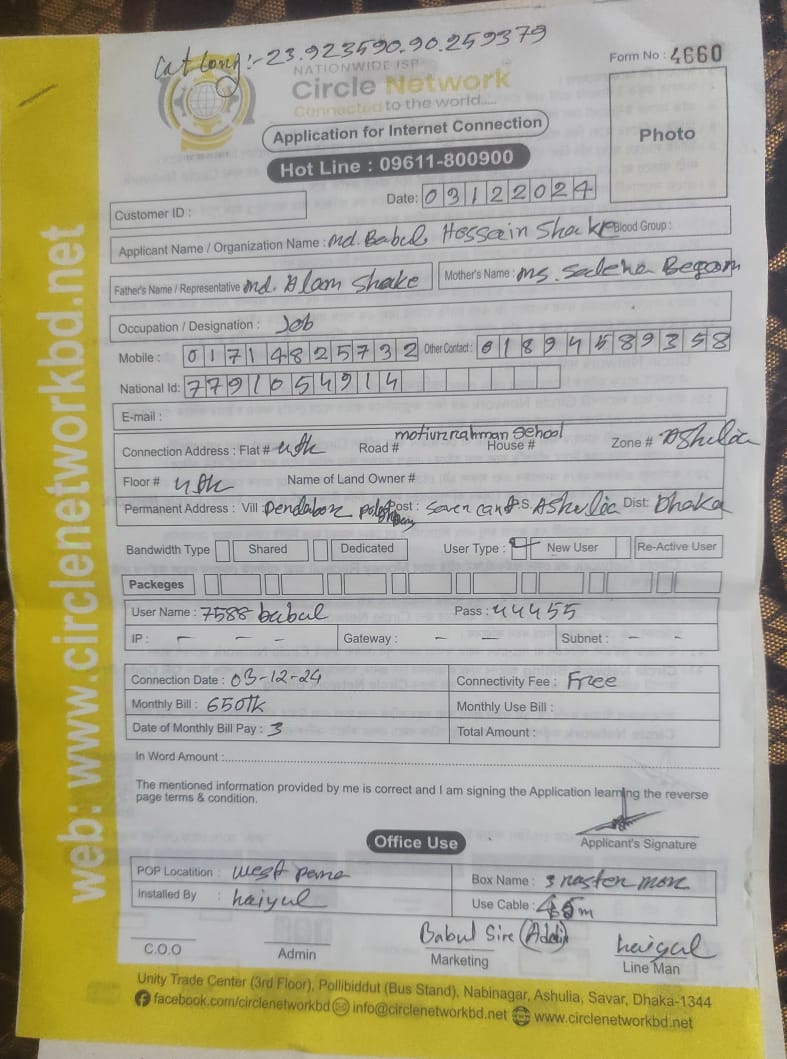 Cat Long:-23.923590.90.259379
Form No : 4660
NATIONWIDE ISP
Circle Network
Connected to the world.....
Application for Internet Connection
Photo
Hot Line : 09611-800900
Date: 03122024
Customer ID :
Applicant Name / Organization Name : Md. Babul Hossain Shake Blood Group :
Father's Name / Representative Md. Alam Shake Mother's Name : Ms. Saleha Begom
Occupation / Designation : Job
Mobile : 01714825732 Other Contact : 01894589358
National Id: 7791054914
E-mail :
Connection Address : Flat # 4th Road # motiurrahman School House # Zone # Ashulia
Floor # 4th Name of Land Owner #
Permanent Address : Vill : Dendabor Post : P.S. Ashulia Dist: Dhaka
Bandwidth Type Shared Dedicated User Type : New User Re-Active User
Packeges
User Name : 7588 babul Pass : 44455
IP : - - - Gateway : - Subnet : - -
Connection Date : 03-12-24 Connectivity Fee : Free
Monthly Bill : 650Tk Monthly Use Bill :
Date of Monthly Bill Pay : 3 Total Amount :
In Word Amount :
The mentioned information provided by me is correct and I am signing the Application learning the reverse
page terms & condition.
Applicant's Signature
Office Use
POP Locatition : west Box Name : 3 more
Installed By : haiyul Use Cable : m
Babul Sire haiyul
C.O.O Admin Marketing Line Man
Unity Trade Center (3rd Floor), Pollibiddut (Bus Stand), Nabinagar, Ashulia, Savar, Dhaka-1344
facebook.com/circlenetworkbd info@circlenetworkbd.net www.circlenetworkbd.net
web: www.circlenetworkbd.net